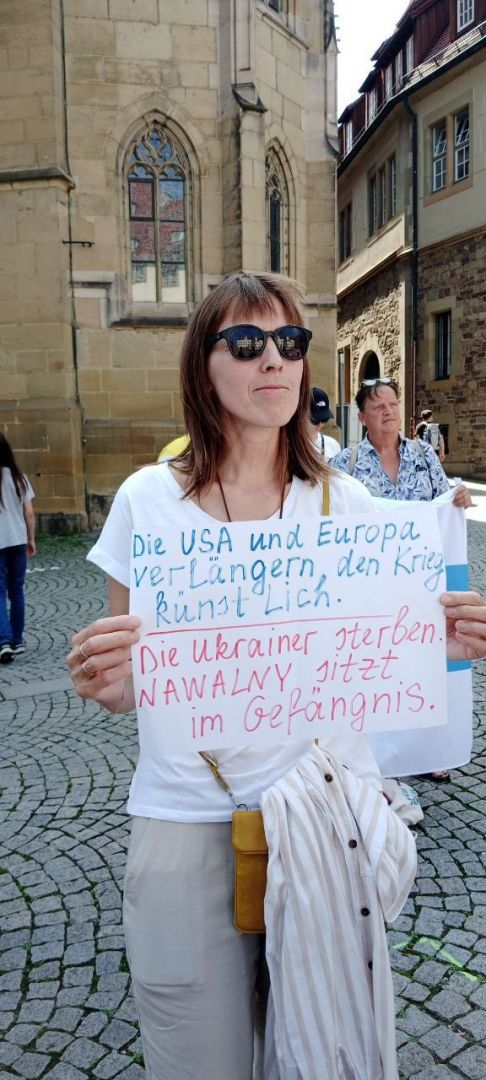 Die USA und Europa
verlängern den Krieg
künstlich.
Die Ukrainer sterben.
NAWALNY sitzt
im Gefängnis.